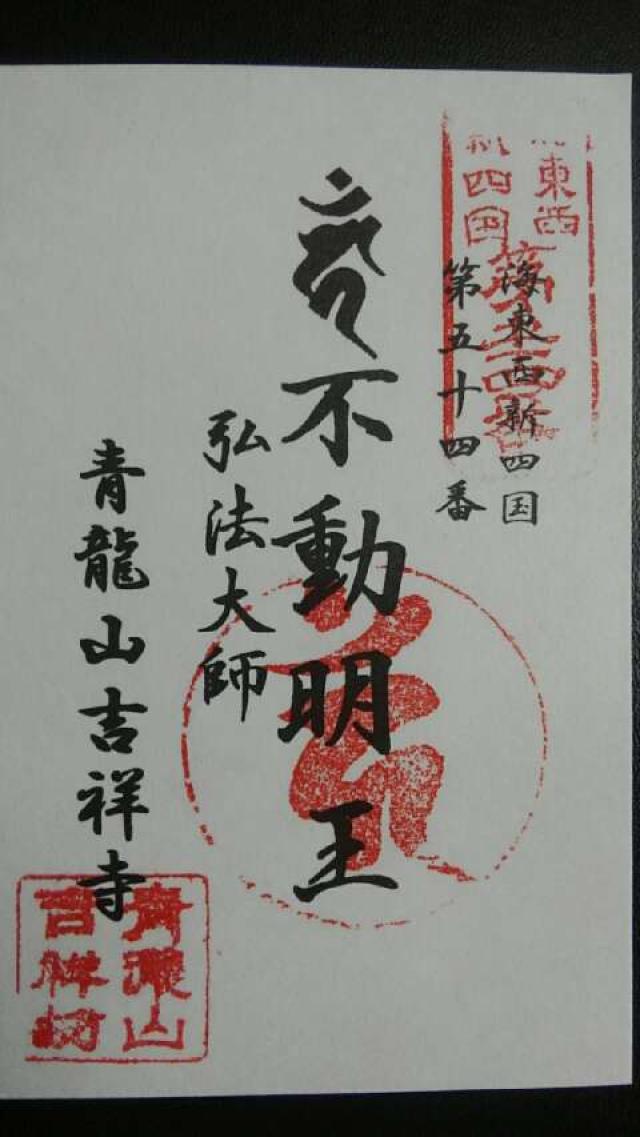 海東西新四国
第五十四番
不動明王
弘法大師
青龍山吉祥寺
東西
四国
青龍山
吉祥